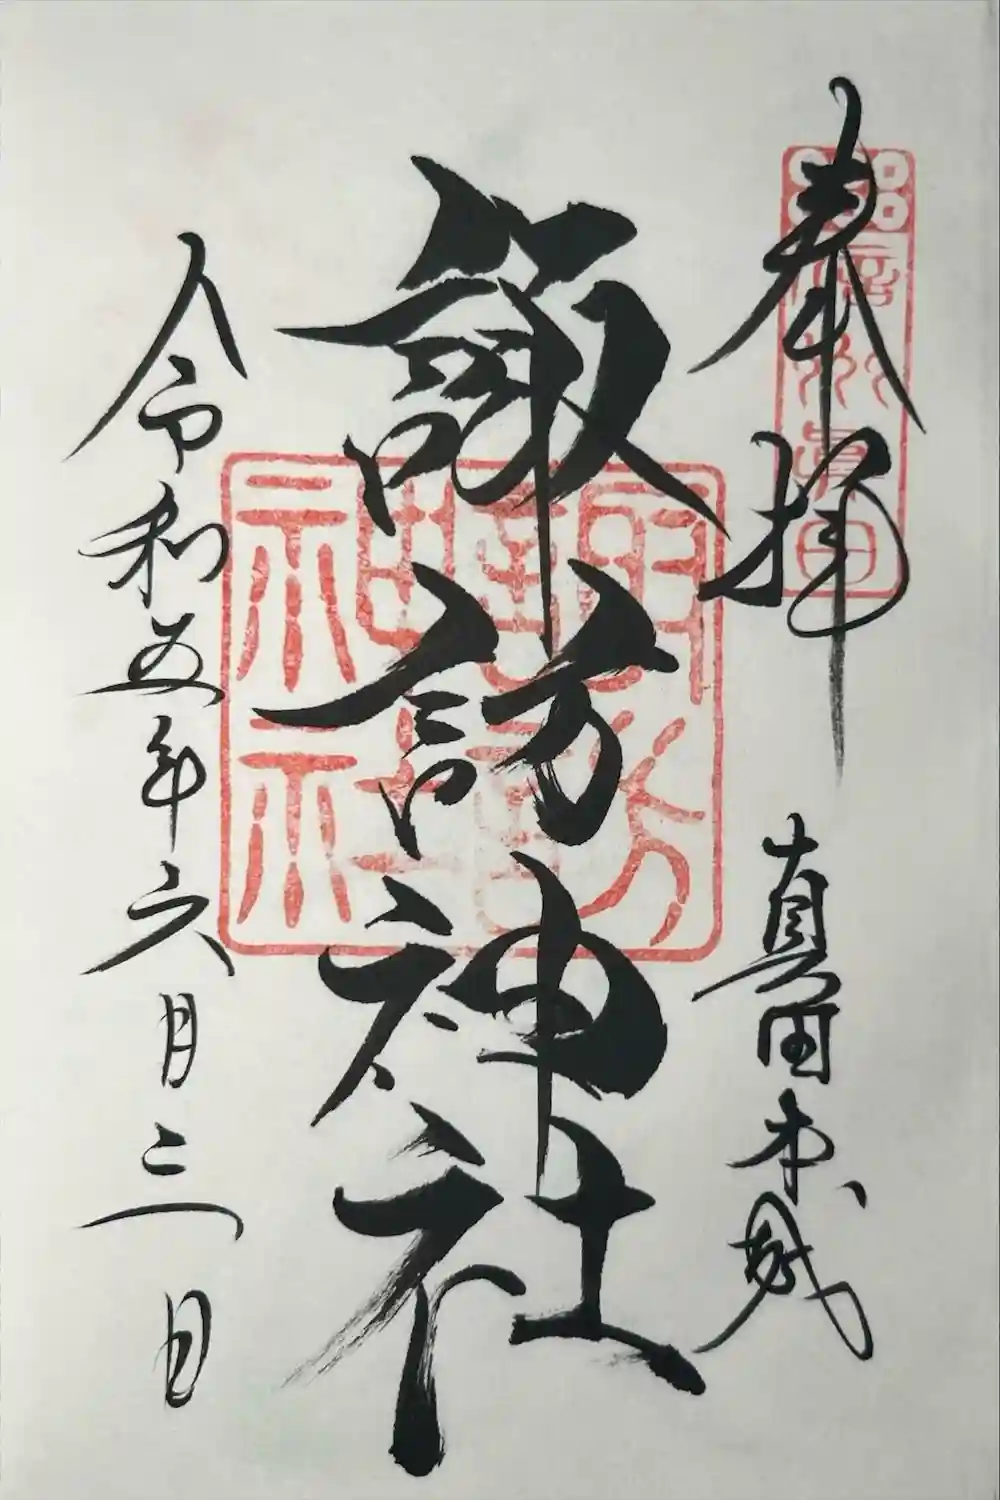 奉拝
真田本城
信州真田
諏訪神社
諏訪神社
令和五年六月三日